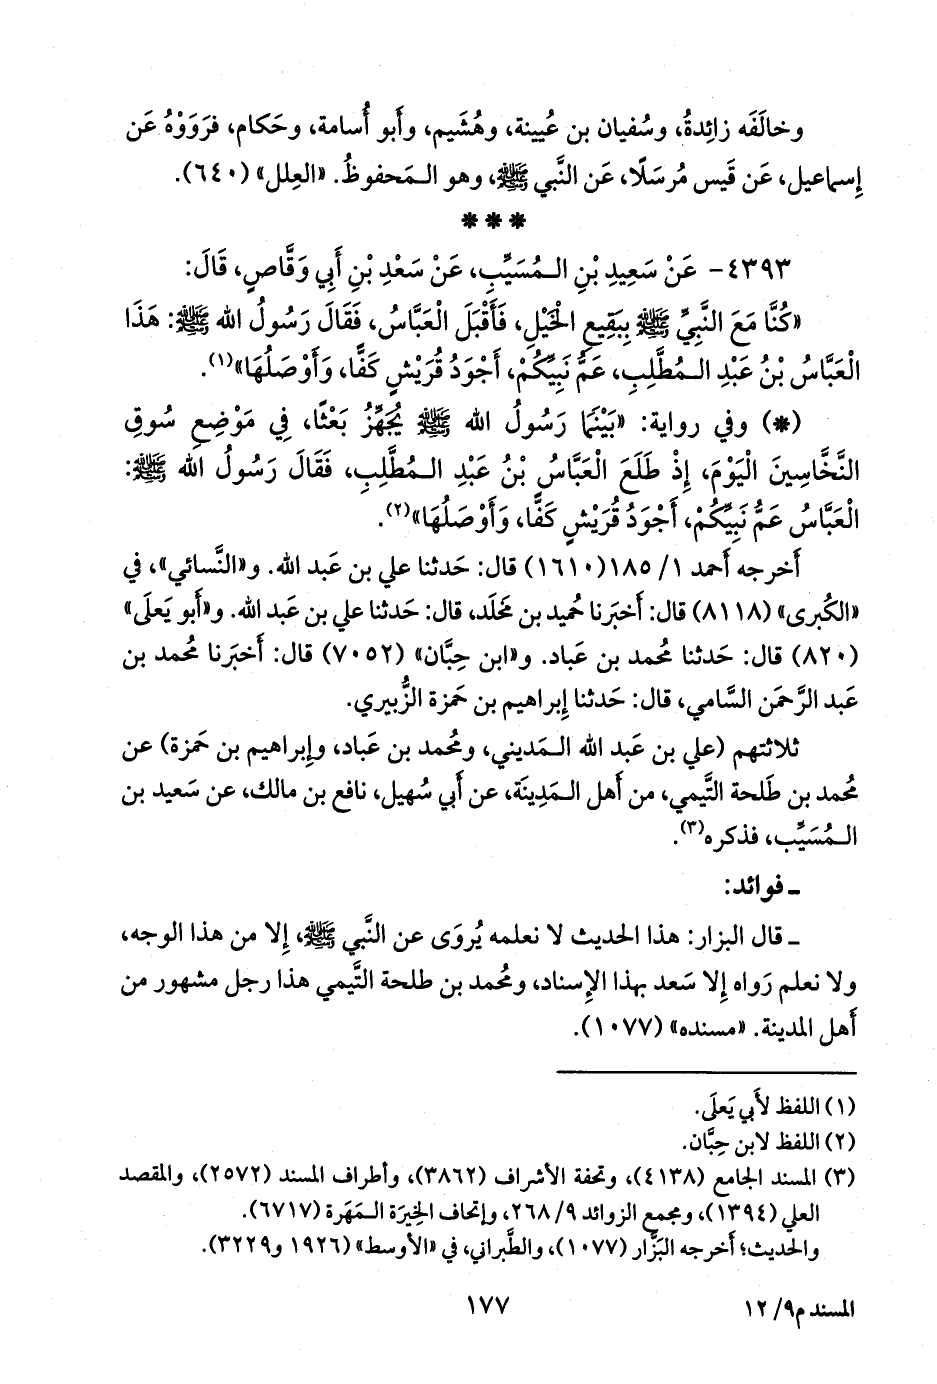 وخالَفَه زائِدةُ، وسُفيان بن عُيينة، وهُشَيم، وأَبو أُسامة، وحَكام، فرَوَوْهُ عَن
إِسماعيل، عَن قَيس مُرسَلًا، عَن النَّبي ﷺ، وهو الـمَحفوظُ. «العِلل» (٦٤٠).
* * *
٤٣٩٣- عَنْ سَعِيدِ بْنِ الـمُسَيِّبِ، عَنْ سَعْدِ بْنِ أَبِي وَقَّاصٍ، قَالَ:
«كُنَّا مَعَ النَّبِيِّ ﷺ بِبَقِيعِ الْخَيْلِ، فَأَقْبَلَ الْعَبَّاسُ، فَقَالَ رَسُولُ الله ﷺ: هَذَا
الْعَبَّاسُ بْنُ عَبْدِ الـمُطَّلِبِ، عَمُّ نَبِيِّكُمْ، أَجْوَدُ قُرَيْشٍ كَفًّا، وَأَوْصَلُهَا»(١).
(*) وفي رواية: «بَيْنَمَا رَسُولُ الله ﷺ يُجَهِّزُ بَعْثًا، فِي مَوْضِعِ سُوقِ
النَّخَّاسِينَ الْيَوْمَ، إِذْ طَلَعَ الْعَبَّاسُ بْنُ عَبْدِ الـمُطَّلِبِ، فَقَالَ رَسُولُ الله ﷺ:
الْعَبَّاسُ عَمُّ نَبِيِّكُمْ، أَجْوَدُ قُرَيْشٍ كَفًّا، وَأَوْصَلُهَا»(٢).
أَخرجه أَحمد ١/ ١٨٥(١٦١٠) قال: حَدثنا علي بن عَبد الله. و«النَّسائي»، في
«الكُبرى» (٨١١٨) قال: أَخبَرنا حُميد بن مَخلَد، قال: حَدثنا علي بن عَبد الله. و«أَبو يَعلَى»
(٨٢٠) قال: حَدثنا مُحمد بن عَباد. و«ابن حِبَّان» (٧٠٥٢) قال: أَخبَرنا مُحمد بن
عَبد الرَّحمَن السَّامي، قال: حَدثنا إِبراهيم بن حَمزة الزُّبيري.
ثلاثتهم (علي بن عَبد الله الـمَديني، ومُحمد بن عَباد، وإِبراهيم بن حَمزة) عن
مُحمد بن طَلحة التَّيمي، من أَهل الـمَدِينَة، عن أَبي سُهيل، نافع بن مالك، عن سَعيد بن
الـمُسَيِّب، فذكره(٣).
ـ فوائد:
ـ قال البزار: هذا الحديث لا نعلمه يُروَى عن النَّبي ﷺ، إِلا من هذا الوجه،
ولا نعلم رَواه إِلا سَعد بهذا الإِسناد، ومُحمد بن طلحة التَّيمي هذا رجل مشهور من
أَهل المدينة. «مسنده» (١٠٧٧).
(١) اللفظ لأَبي يَعلَى.
(٢) اللفظ لابن حِبَّان.
(٣) المسند الجامع (٤١٣٨)، وتحفة الأشراف (٣٨٦٢)، وأطراف المسند (٢٥٧٢)، والمقصد
العلي (١٣٩٤)، ومجمع الزوائد ٩/ ٢٦٨، وإتحاف الخِيرَة الـمَهَرة (٦٧١٧).
والحديث؛ أخرجه البَزَّار (١٠٧٧)، والطَّبراني، في «الأوسط» (١٩٢٦ و٣٢٢٩).
المسند م٩/ ١٢
١٧٧